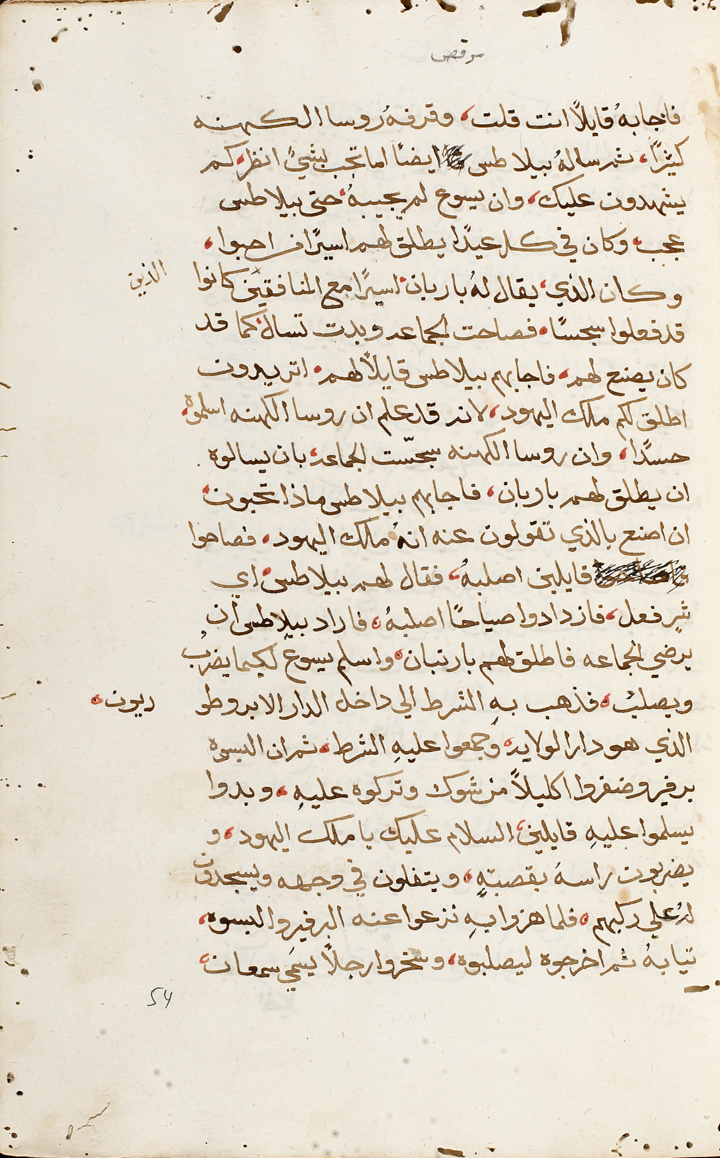 مرقص
فاجابهُ قايلاً انت قلت، وقرفهُ روسا الكهنه
كثيرًا، ثم ساله بيلاطس ايضًا اما تجب بشيٍ انظر كم
يشهدون عليك، وان يسوع لم يجيبهُ حتى بيلاطس
عجب، وكان في كل عيدًا يطلق لهم اسيرًا من احبوا،
وكان الذي، يقال لهُ باربان اسيرًا مع المنافقين كانوا
الذين
قد فعلوا سجسًا، فصاحت الجماعه وبدت تساله كما قد
كان يصنع لهم، فاجابهم بيلاطس قايلاً لهم، اتريدون
اطلق لكم ملك اليهود، لانه قد علم ان روسا الكهنه اسلموه
حسدًا، وان روسا الكهنه سجسّت الجماعه، بان يسالوه
ان يطلق لهم باربان، فاجابهم بيلاطس ماذا تحبون
ان اصنع بالذي تقولون عنه انهُ ملك اليهود، فصاحوا
قايلين اصلبهُ، فقال لهم بيلاطس اي
شرٍ فعل، فازدادوا صياحًا اصلبهُ، فاراد بيلاطس ان
يرضي الجماعه فاطلق لهم باربان، واسلم يسوع لكيما يضرب
ويصلب، فذهب بهِ الشرط الي داخل الدار الابروطو
ريون،
الذي هو دار الولايه، وجمعوا عليهِ الشرط، ثم ان البسوه
برفير وضفروا اكليلاً من شوك وتركوه عليهِ، وبدوا
يسلموا عليهِ قايلين، السلام عليك يا ملك اليهود، و
يضربون راسهُ بقصبتهٍ، ويتفلون في وجهه ويسجدون
لهُ علي ركبهم، فلما هزوا بهِ نزعوا عنه البرفير والبسوه،
ثيابهُ ثم اخرجوه ليصلبوه، وسخروا رجلاً يسمي سمعان،
54